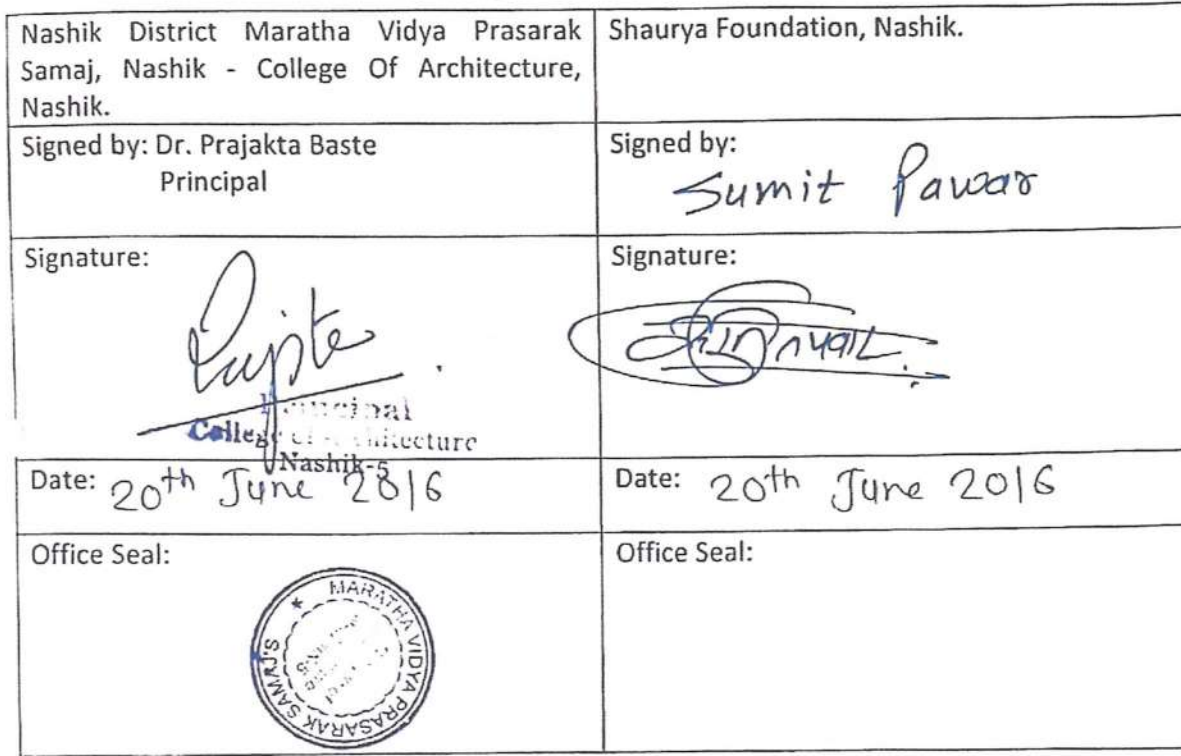 Nashik District Maratha Vidya Prasarak
Samaj, Nashik - College Of Architecture,
Nashik.
Shaurya Foundation, Nashik.
Signed by: Dr. Prajakta Baste
Principal
Signed by:
Sumit Pawar
Signature:
Principal
College of Architecture
Nashik-5
Signature:
Date: 20th June 2016
Date: 20th June 2016
Office Seal:
MARATHA VIDYA PRASARAK SAMAJ'S
Office Seal: